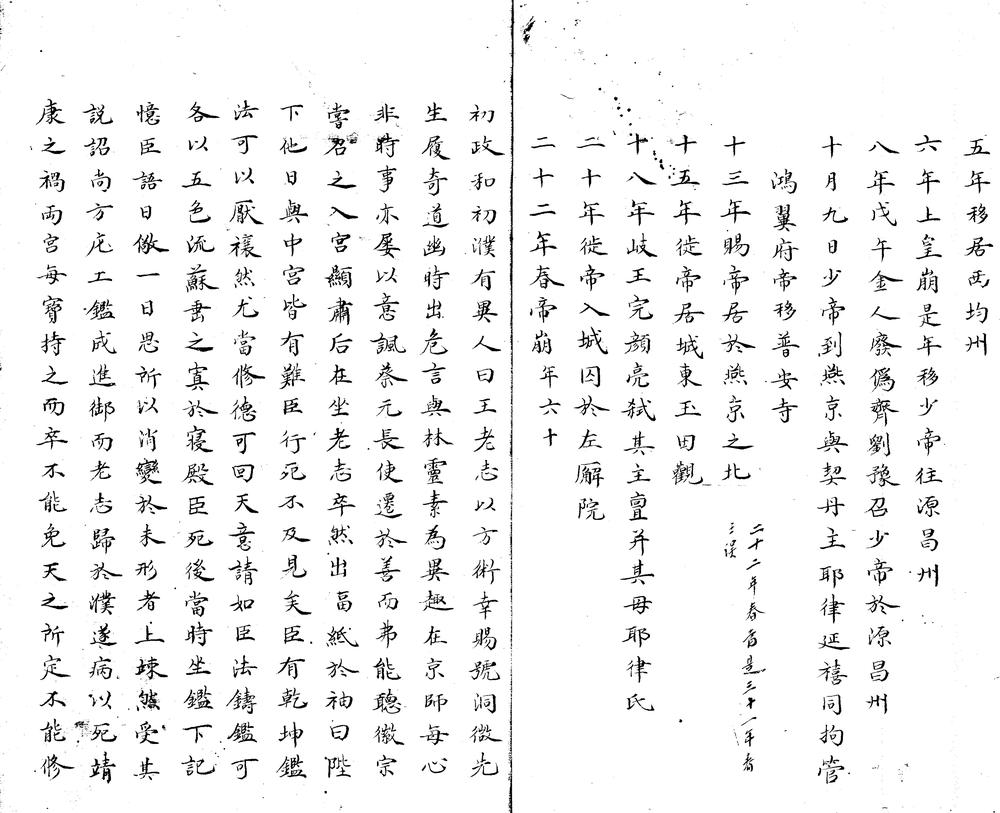 五年移居西均州
六年上皇崩是年移少帝往源昌州
八年戊午金人廢僞齊劉豫召少帝於源昌州
十月九日少帝到燕京與契丹主耶律延禧同拘管
鴻翼府帝移普安寺
十三年賜帝居於燕京之北
二十二年春省是三十一年春
三误
十五年徙帝居城東玉田觀
十八年岐王完顔亮弑其主亶并其母耶律氏
二十年徙帝入城囚於左廨院
二十二年春帝崩年六十
初政和初濮有異人曰王老志以方術幸賜號洞微先
生履奇道幽時出危言與林靈素為異趣在京師每心
非時事亦屡以意諷蔡元長使遷於善而弗能聽徽宗
嘗召之入宮顯肅后在坐老志卒然出畐紙於袖曰陛
下他日與中宮皆有難臣行死不及見矣臣有乾坤鑑
法可以厭禳然尤當修德可回天意請如臣法鑄鑑可
各以五色流蘇垂之寘於寝殿臣死後當時坐鑑下記
憶臣語日儆一日思所以消變於未形者上竦然受其
説詔尚方庀工鑑成進御而老志歸於濮遂病以死靖
康之禍两宮每寳持之而卒不能免天之所定不能修